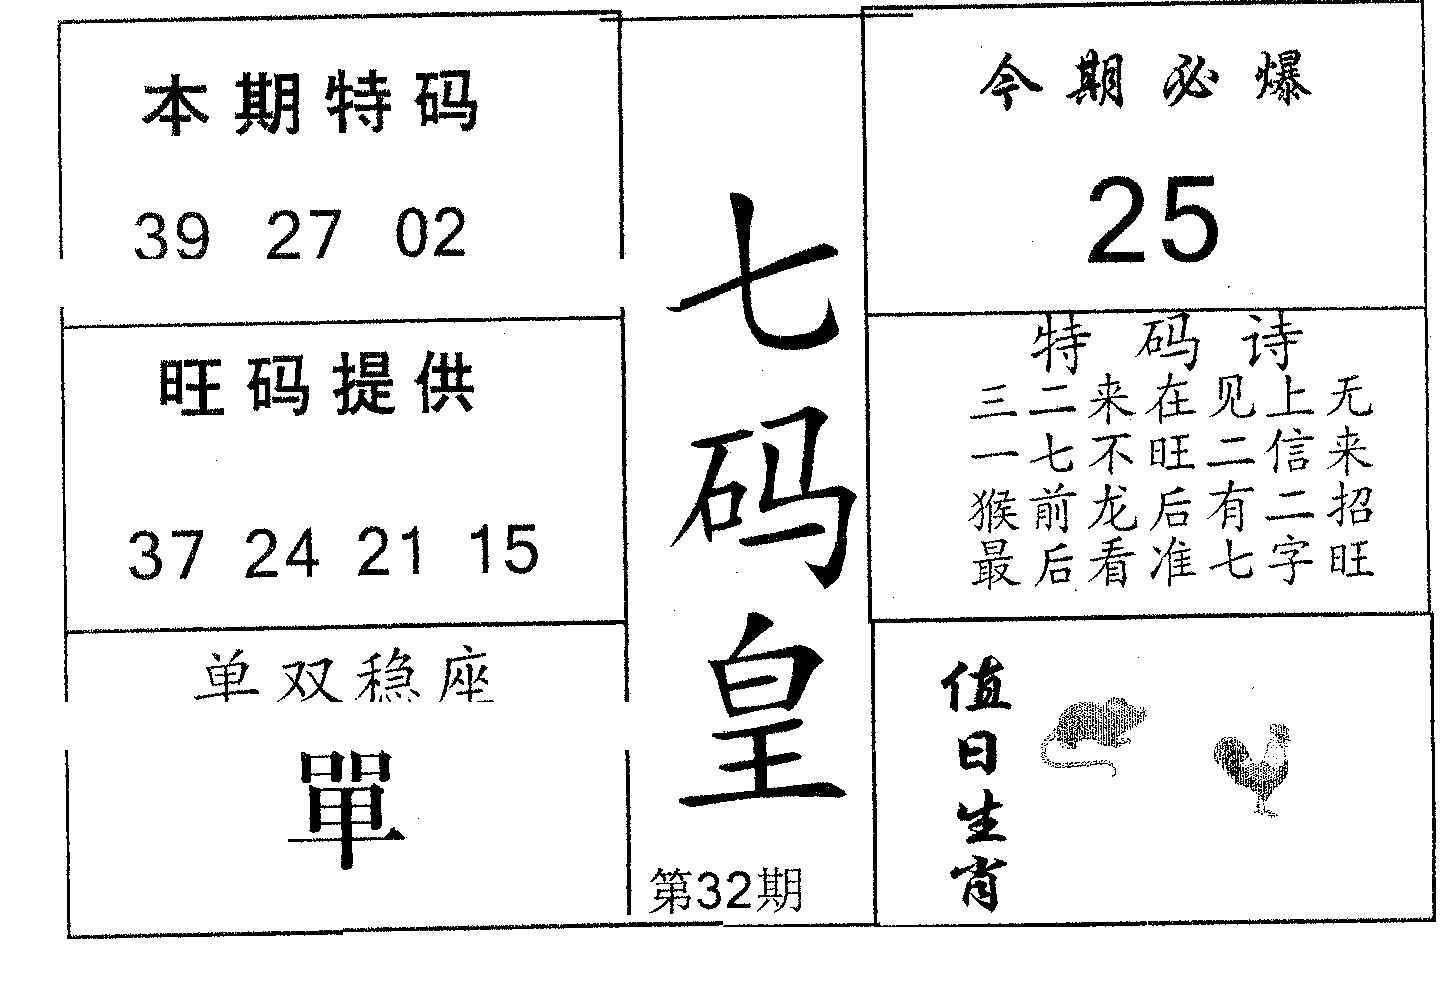 本期特码
39 27 02
旺码提供
37 24 21 15
单双稳座
單
七码皇
第32期
今期必爆
25
特码诗
三二来在见上无
一七不旺二信来
猴前龙后有二招
最后看准七字旺
值日生肖